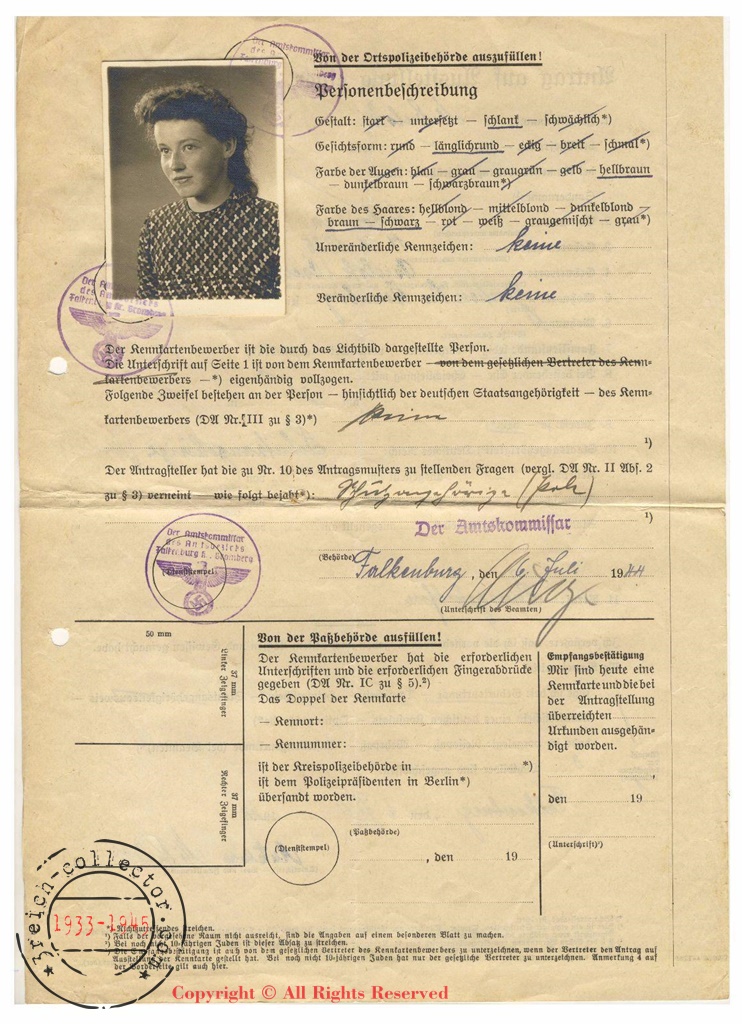 Von der Ortspolizeibehörde auszufüllen!
Personenbeschreibung
Gestalt: stark — untersetzt — schlank — schwächlich*)
Gesichtsform: rund — länglichrund — eckig — breit — schmal*)
Farbe der Augen: blau — grau — graugrün — gelb — hellbraun
— dunkelbraun — schwarzbraun*)
Farbe des Haares: hellblond — mittelblond — dunkelblond —
braun — schwarz — rot — weiß — graugemischt — grau*)
Unveränderliche Kennzeichen: keine
Veränderliche Kennzeichen: keine
Der Kennkartenbewerber ist die durch das Lichtbild dargestellte Person.
Die Unterschrift auf Seite 1 ist von dem Kennkartenbewerber — von dem gesetzlichen Vertreter des Kenn-
kartenbewerbers —*) eigenhändig vollzogen.
Folgende Zweifel bestehen an der Person — hinsichtlich der deutschen Staatsangehörigkeit — des Kenn-
kartenbewerbers (DA Nr. III zu § 3)*) keine
¹)
Der Antragsteller hat die zu Nr. 10 des Antragsmusters zu stellenden Fragen (vergl. DA Nr. II Abs. 2
zu § 3) verneint — wie folgt bejaht*): Schutzangehörige (Pole)
¹)
Der Amtskommissar
des Amtsbezirks
Falkenburg Kr. Bromberg
(Dienststempel)
Der Amtskommissar
(Behörde)
Falkenburg, den 6. Juli 1944
(Unterschrift des Beamten)
50 mm
37 mm
Linker Zeigefinger
37 mm
Rechter Zeigefinger
Von der Paßbehörde ausfüllen!
Der Kennkartenbewerber hat die erforderlichen
Unterschriften und die erforderlichen Fingerabdrücke
gegeben (DA Nr. IC zu § 5).²)
Das Doppel der Kennkarte
— Kennort:
— Kennummer:
ist der Kreispolizeibehörde in *)
ist dem Polizeipräsidenten in Berlin*)
übersandt worden.
(Paßbehörde)
(Dienststempel)
, den 19
Empfangsbestätigung
Mir sind heute eine
Kennkarte und die bei
der Antragstellung
überreichten
Urkunden ausgehän-
digt worden.
,
den 19
(Unterschrift)³)
*) Nichtzutreffendes streichen.
¹) Falls der vorgesehene Raum nicht ausreicht, sind die Angaben auf einem besonderen Blatt zu machen.
²) Bei noch nicht 10-jährigen Juden ist dieser Absatz zu streichen.
³) Die Empfangsbestätigung ist auch von dem gesetzlichen Vertreter des Kennkartenbewerbers zu unterzeichnen, wenn der Vertreter den Antrag auf
Ausstellung der Kennkarte gestellt hat. Bei noch nicht 10-jährigen Juden hat nur der gesetzliche Vertreter zu unterzeichnen. Anmerkung 4 auf
der Vorderseite gilt auch hier.
3reich-collector.com
1933-1945
Copyright © All Rights Reserved